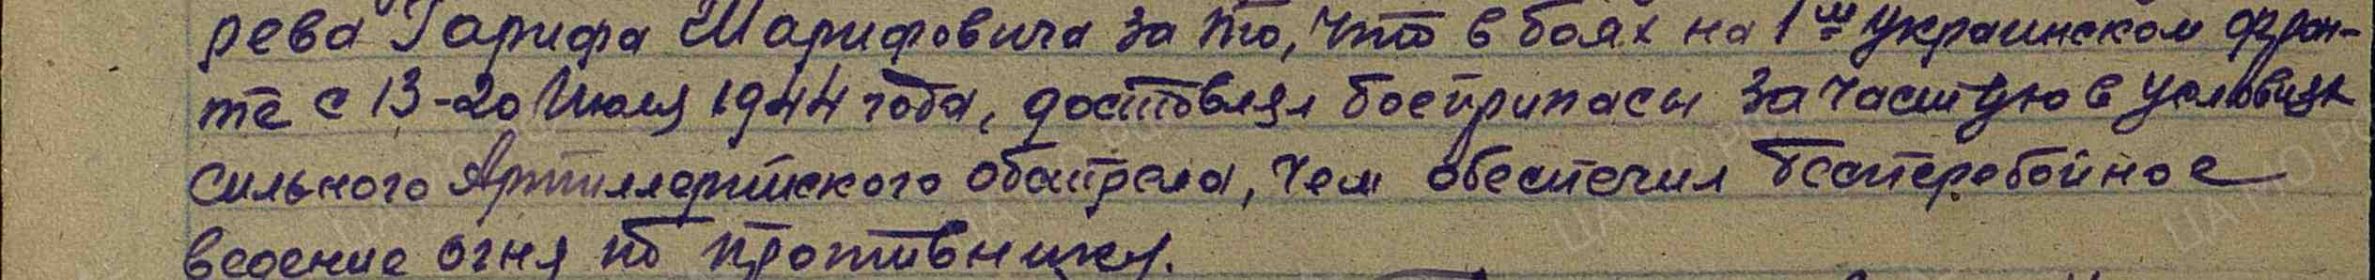 рева Гарифа Шарифовича за то, что в боях на 1ш Украинском фрон-
те с 13-20 Июля 1944 года, доставлял боеприпасы за частую в условиях
сильного Артиллерийского обстрела, чем обеспечил бесперебойное
ведение огня по противнику.